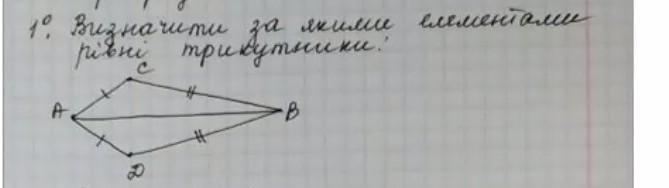 1°. Визначити за якими елементами
рівні трикутники:
C
A
B
D